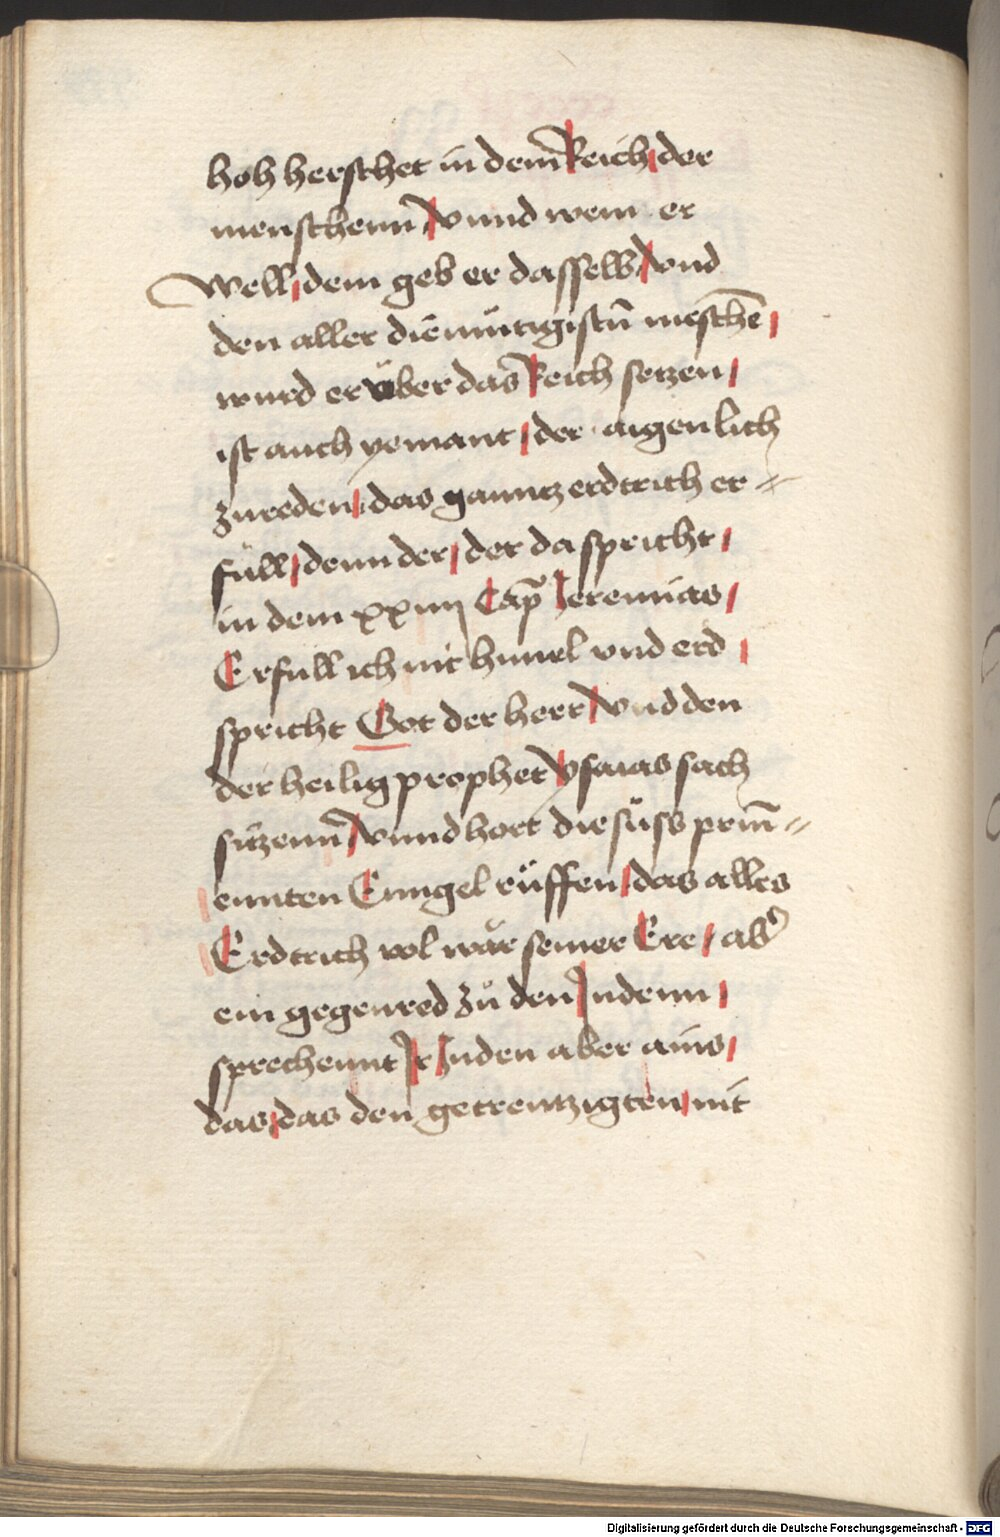 hoh herschet in dem Reich der
menschenn vnnd wem er
well dem geb er dasselb vnd
den aller diemütigistn̄ mēschē
wurd er über das Reich setzen
ist auch yemant der aigenlich
zureden das ganntz erdtrich er=
füll denn der der da spricht
in dem xxiiij Cap̄ Jeremias
Erfüll ich nit himel vnd erd
spricht Got der herr vnd den
der heilig prophet ysaias sach
sitzenn vnnd hort die süss prin̄=
ennten Enngel rüffen das alles
Erdtrich vol wär seiner Ere ab̾
ein gegenred zů den Judenn
sprechennt Ir Juden aber ains
das das den gecreutzigten nit
Digitalisierung gefördert durch die Deutsche Forschungsgemeinschaft - DFG